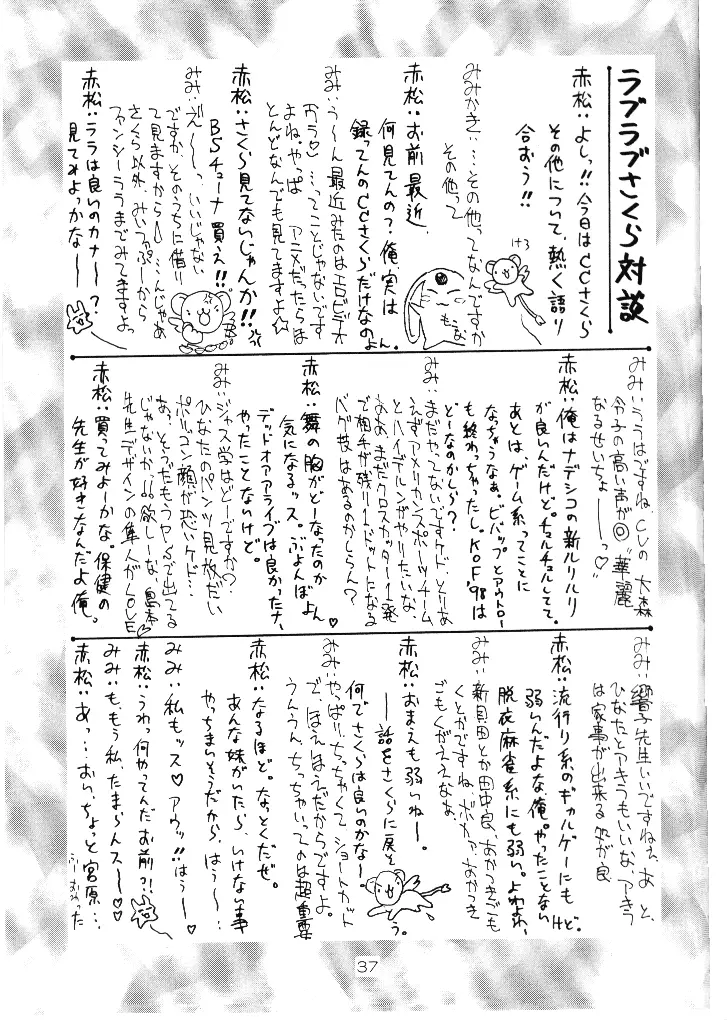 ラブラブさくら対談
赤松:よしっ!!今日はCCさくら
その他について、熱く語り
合おう!!
みみかき:…その他ってなんですか
その他って
赤松:お前最近、
何見てんの?俺、実は
録ってんのCCさくらだけなのよん。
みみ:う〜ん最近みたのはエロビデオ
…ってことじゃないです
よね。やっぱ アニメだったらほ
とんどなんでも見てますよ☆
赤松:さくら見てないじゃんか!!
BSチューナ買え!!
みみ:え〜っ、いいじゃない
ですか、そのうちに借り
て見ますから…んじゃあ
さくら以外、みいつぷーから
ファンシーララまでみてますよ
赤松:ララは良いのカナ〜?
見てみよっかな〜
みみ:ララはですね、CVの大森
令子の高い声が◎"華麗
なるせいちょ〜っ♡"
赤松:俺はナデシコの新ルリルリ
が良いんだけど。チュルチュルしてて。
あとは、ゲーム系ってことに
なっちゃうなぁ。ビバップとアウトロー
も終わっちゃったし。KOF98は
どーなのかしら?
みみ:まだやってないですケド、とりあ
えずアメリカンスポーツチーム
とハイデルンがやりたいな、
まだクロスカッター1発
で相手が残り1ドットになる
バグ技はあるのかしらん?
赤松:舞の胸がどーなったのか
気になるッス。ぷよんぼよん♡
デッドオアアライブは良かったナ、
やったことないけど。
みみ:ジャス学はどーですか?
ひなたのパンツ見放だい
ポリコン顔が恐いケド…
あっ、そうだもうPSで出てる
じゃないか!!欲しーな、島本
先生デザインの隼人がLOVE♡
赤松:買ってみよーかな。保健の
先生が好きなんだよ俺。
みみ:響子先生いいですねぇ、あと、
ひなたとアキラもいいな、アキラ
は家事が出来る 所が良
赤松:流行り系のギャルゲーにも
弱いんだよな、俺。やったことないけど。
脱衣麻雀系にも弱い。よわよわ、
みみ:新貝田とか田中良、あかつきごも
くとかですね、ボカァ、あかつき
ごもくがええなぁ
赤松:おまえも弱いねー。
──話をさくらに戻そう。
何でさくらは良いのかな〜
みみ:やっぱ、ちっちゃくて ショートカット
で、ほえほえだからですよ。
うんうん、ちっちゃいってのは超重要
赤松:なるほど。なっとくだぜ。
あんな妹がいたら、いけない事
やっちまいそうだから、はぅ〜…
みみ:私もッス♡アウッ!!はぅ〜
赤松:うわっ何やってんだお前?!
みみ:ももう私、たまらんス〜♡♡
赤松:あっ…おい、ちょっと宮原…
37